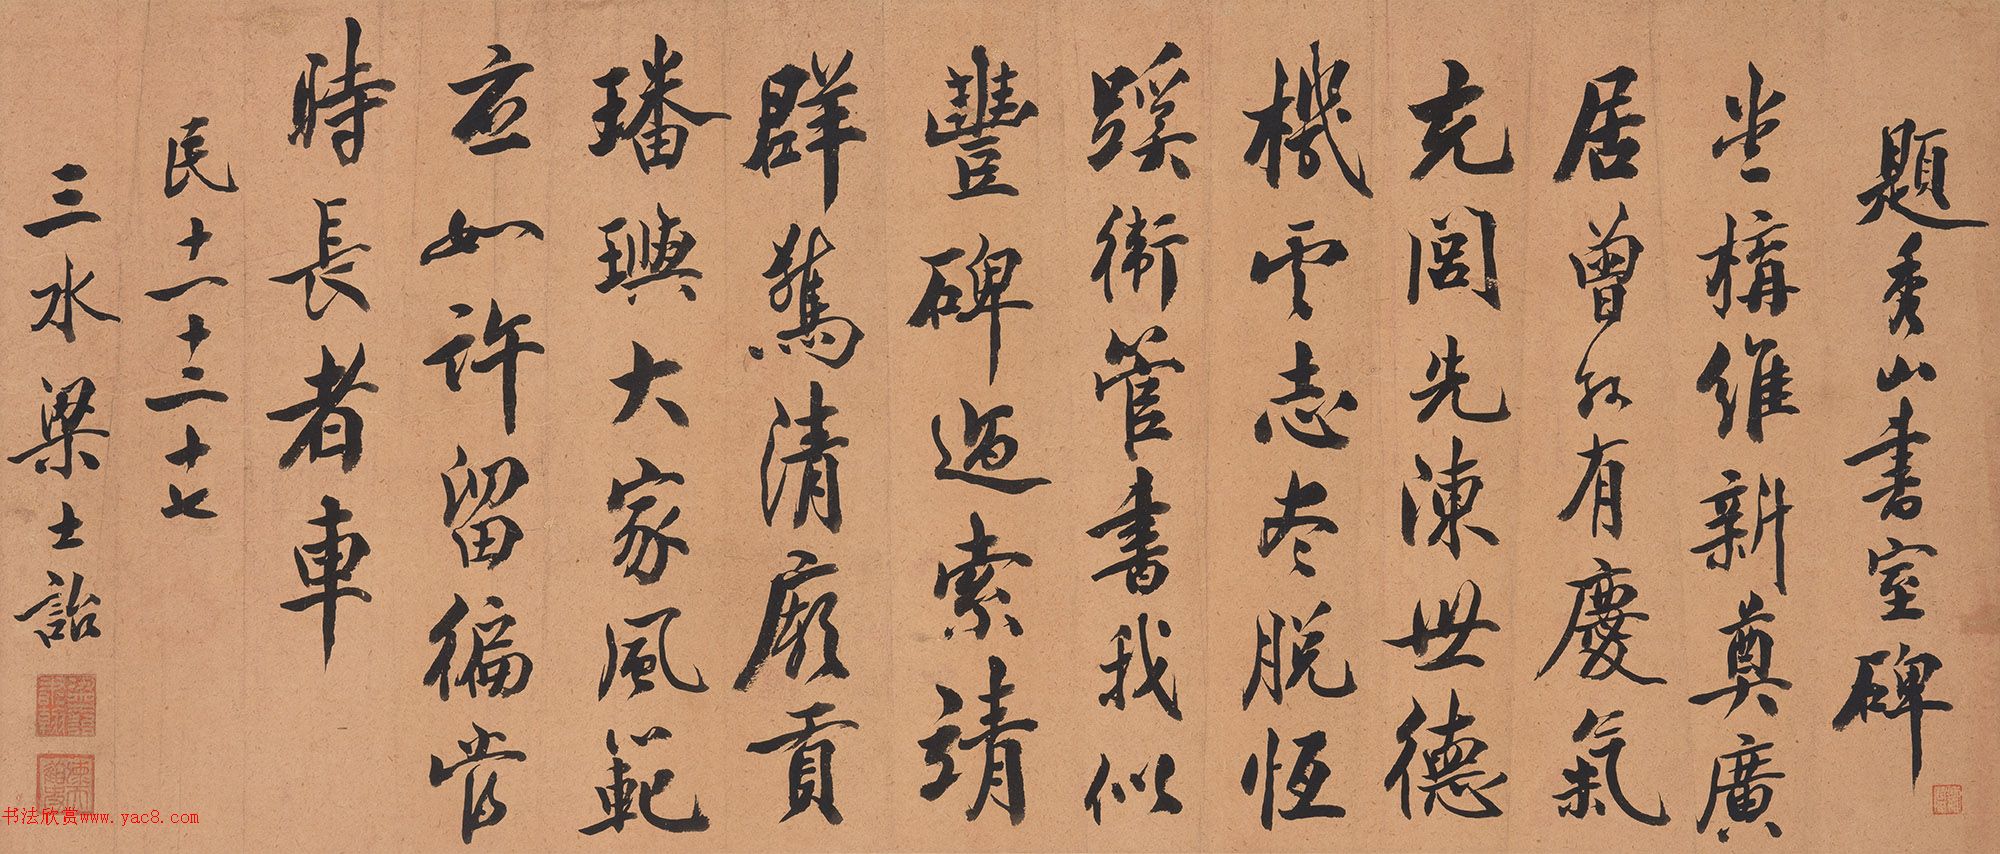 題秀山書室碑
堂構維新奠廣
居曾孫有慶氣
充閭先陳世德
機雲志尽脫恆
蹊衛管書我似
豐碑過索靖
群驚清廟貢
璠璵大家風範
應如許留徧當
時長者車
民十一十二十七
三水梁士詒
书法欣赏www.yac8.com